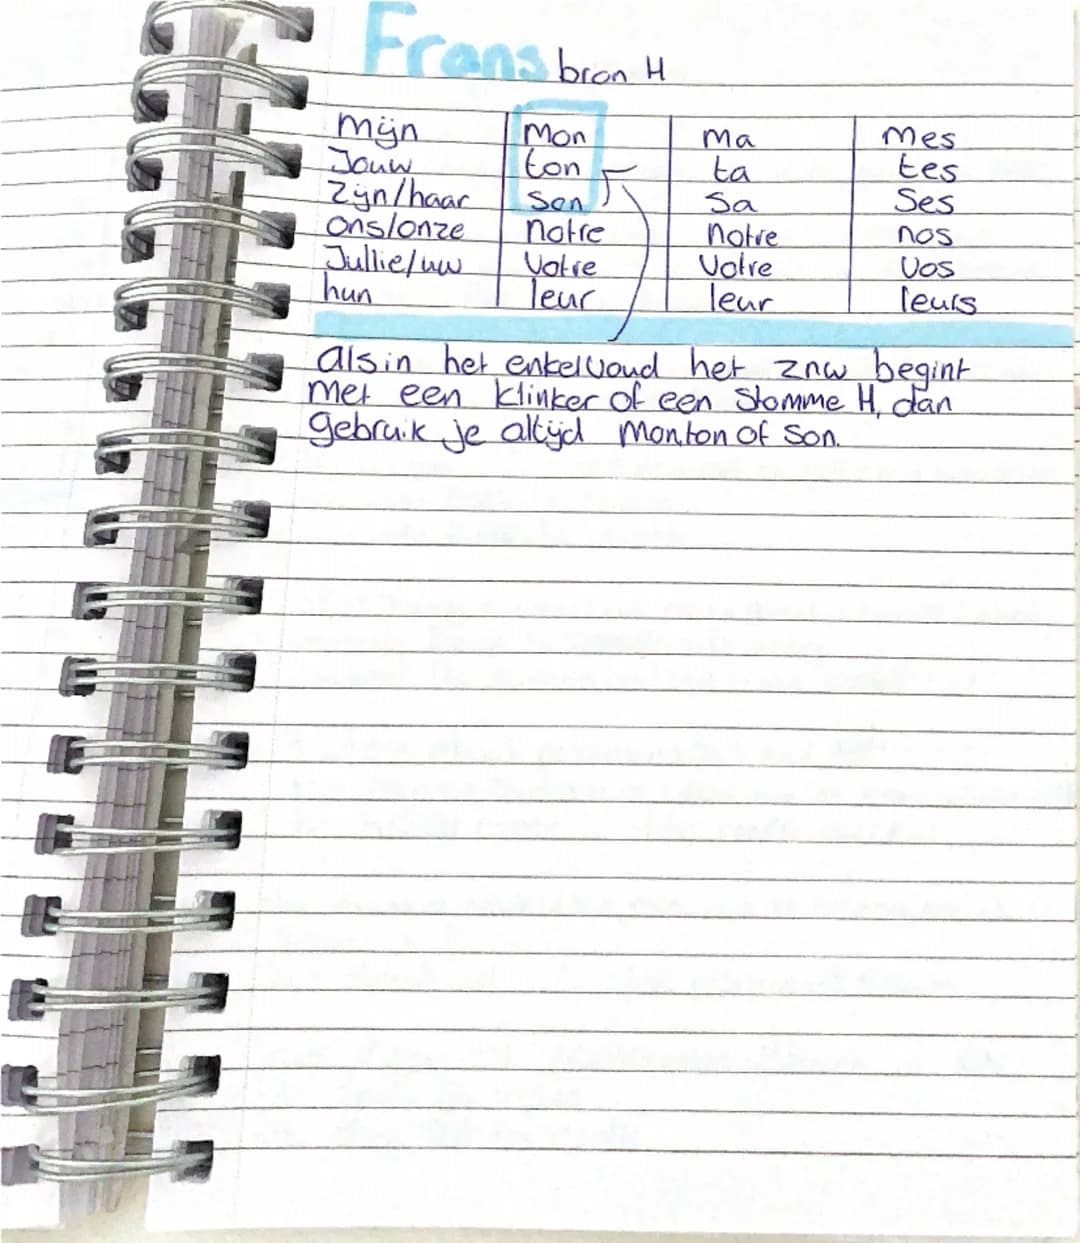 Frans bron H
Mijn Mon Ma Mes
Jouw ton ta tes
Zijn/haar Son Sa Ses
Ons/onze notre notre nos
Jullie/uw Votre Votre Vos
hun leur leur leurs
als in het enkelvoud het znw begint
met een klinker of een stomme H, dan
gebruik je altijd Mon, ton of Son.